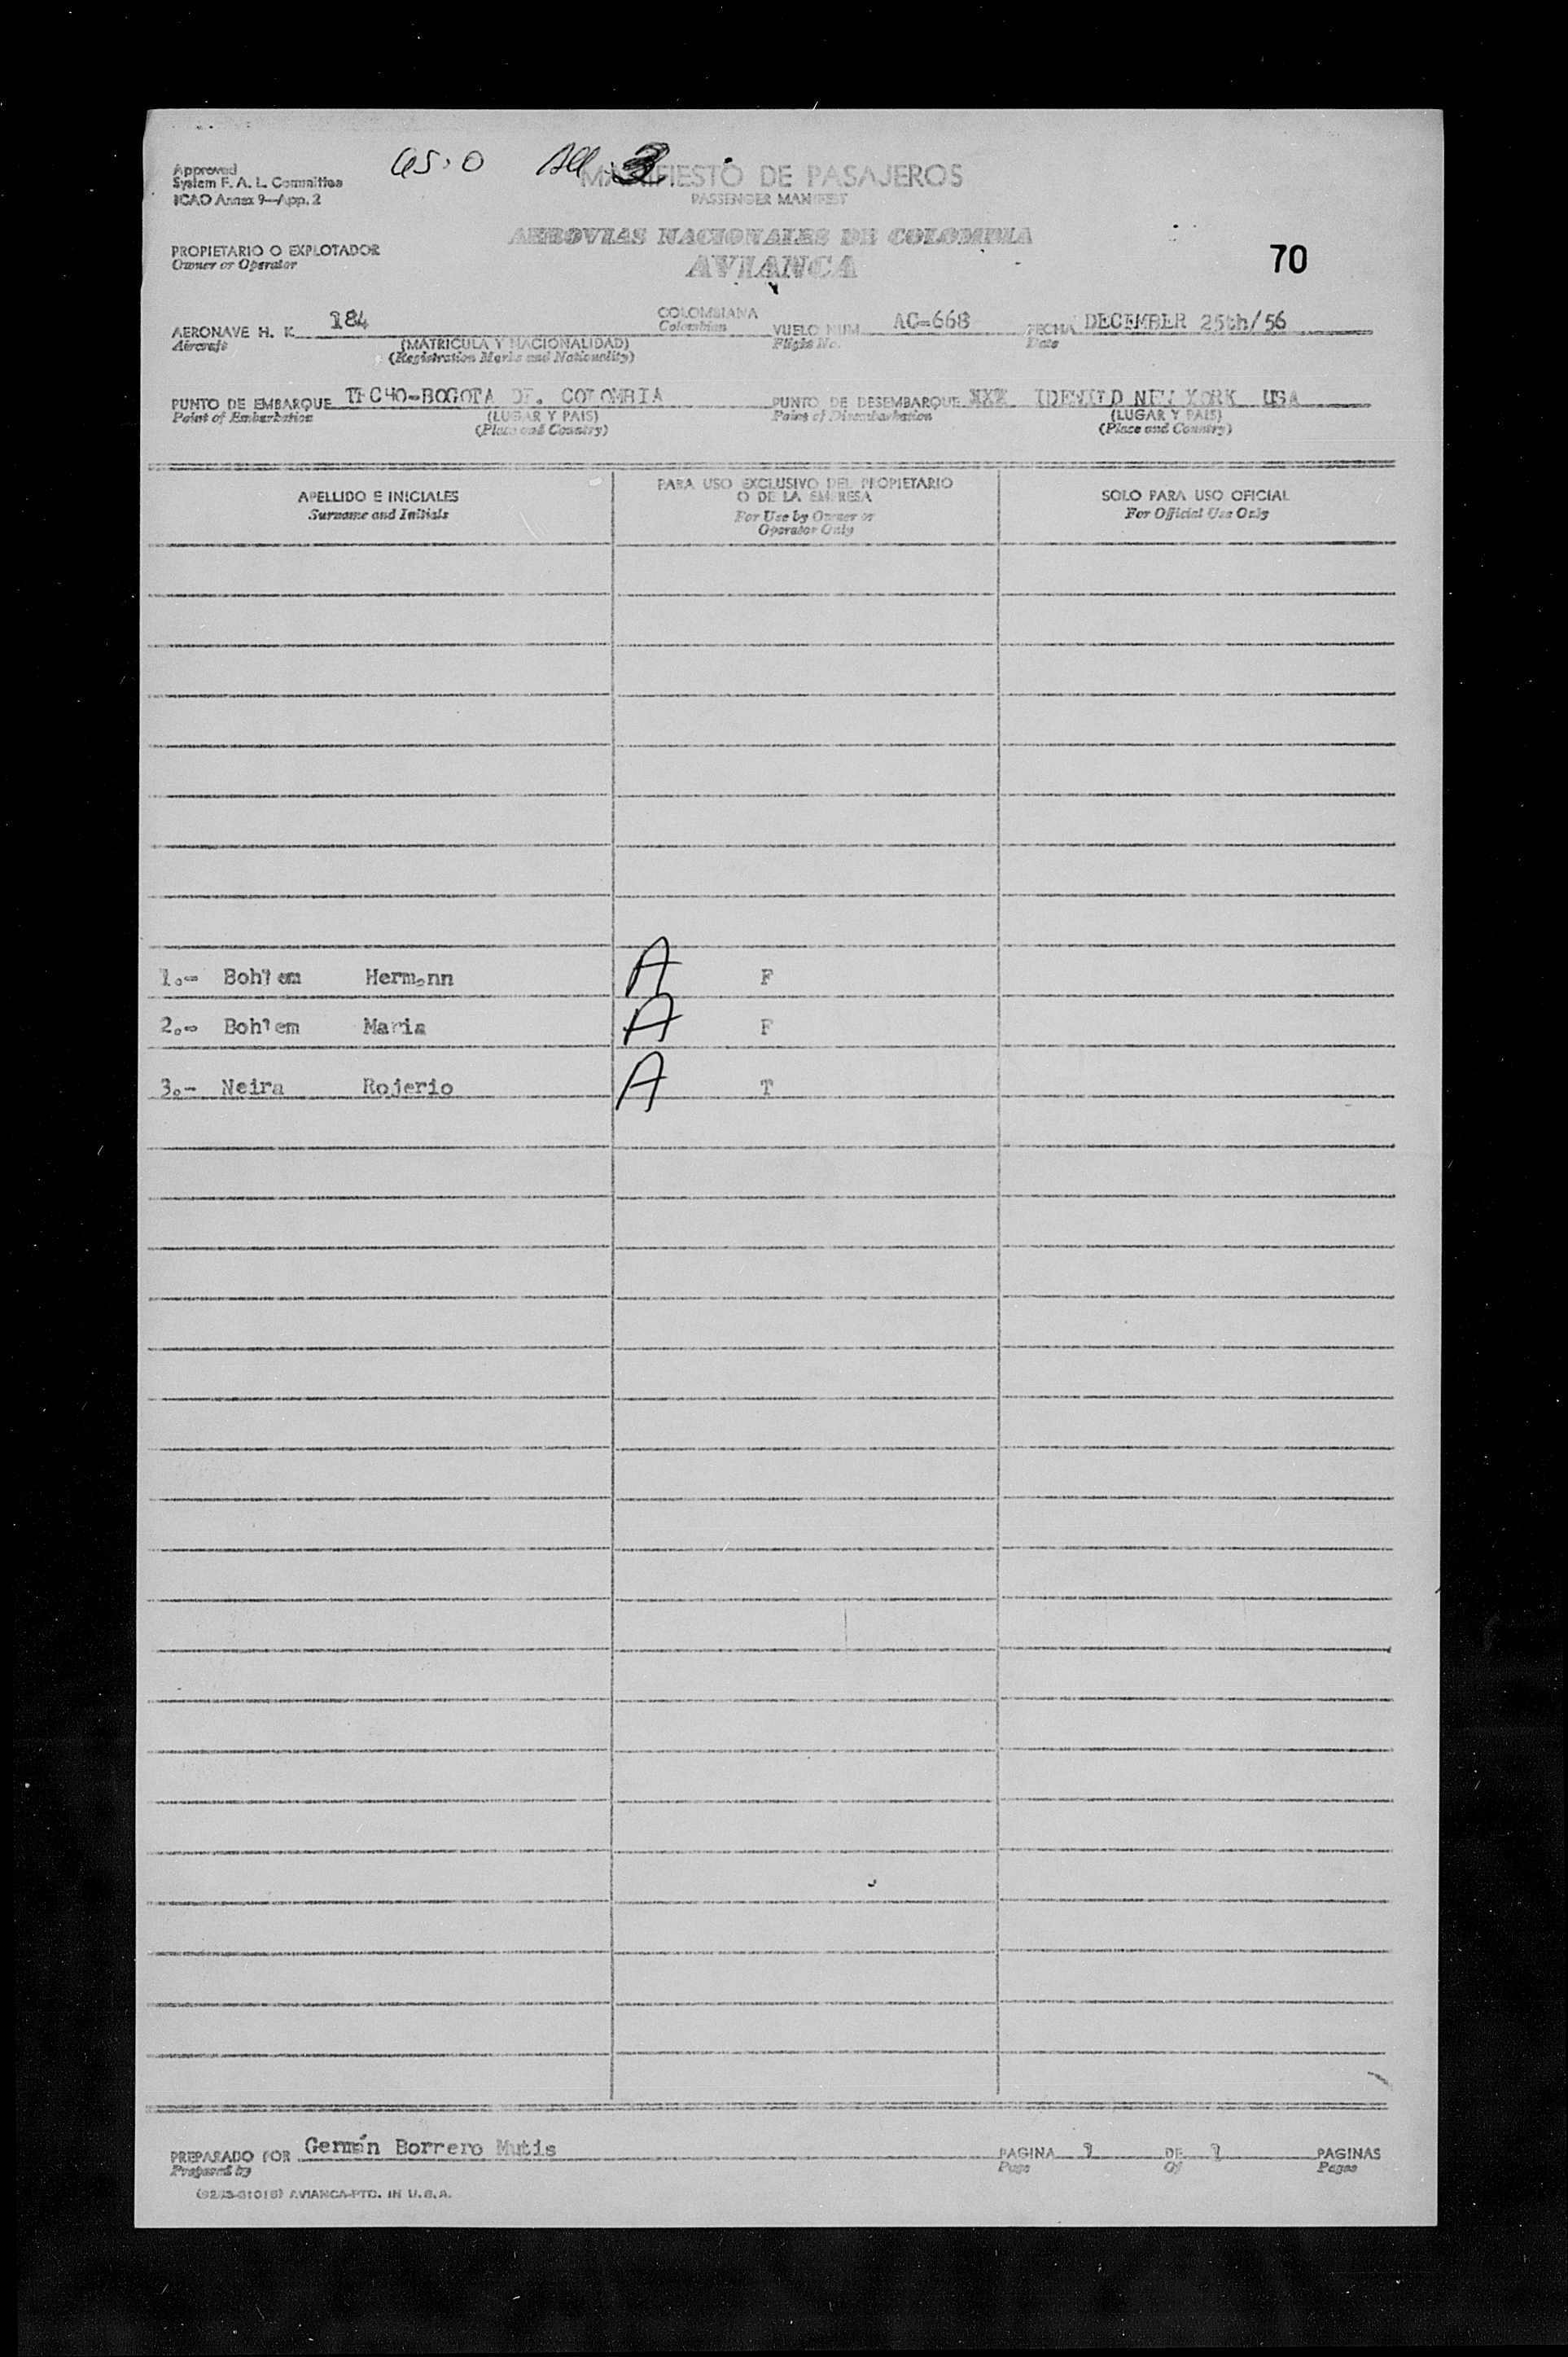 Approved
System F. A. L. Committee
ICAO Annex 9—App. 2
MANIFIESTO DE PASAJEROS
PASSENGER MANIFEST
PROPIETARIO O EXPLOTADOR
Owner or Operator
AEROVIAS NACIONALES DE COLOMBIA
AVIANCA
70
AERONAVE H. K. 184 COLOMBIANA VUELO NUM. AC-668 FECHA DECEMBER 25th/56
Aircraft (MATRICULA Y NACIONALIDAD) Colombian Flight No. Date
(Registration Marks and Nationality)
PUNTO DE EMBARQUE TECHO-BOGOTA DE. COLOMBIA PUNTO DE DESEMBARQUE XXX IDEWILD NEW YORK USA
Point of Embarkation (LUGAR Y PAIS) Point of Disembarkation (LUGAR Y PAIS)
(Place and Country) (Place and Country)
APELLIDO E INICIALES
Surname and Initials
PARA USO EXCLUSIVO DEL PROPIETARIO
O DE LA EMPRESA
For Use by Owner or
Operator Only
SOLO PARA USO OFICIAL
For Official Use Only
1.- Bohlem Hermann A F
2.- Bohlem Maria A F
3.- Neira Rojerio A T
PREPARADO POR Germán Borrero Mutis PAGINA 1 DE 1 PAGINAS
Prepared by Page Of Pages
AVIANCA-PTD. IN U.S.A.